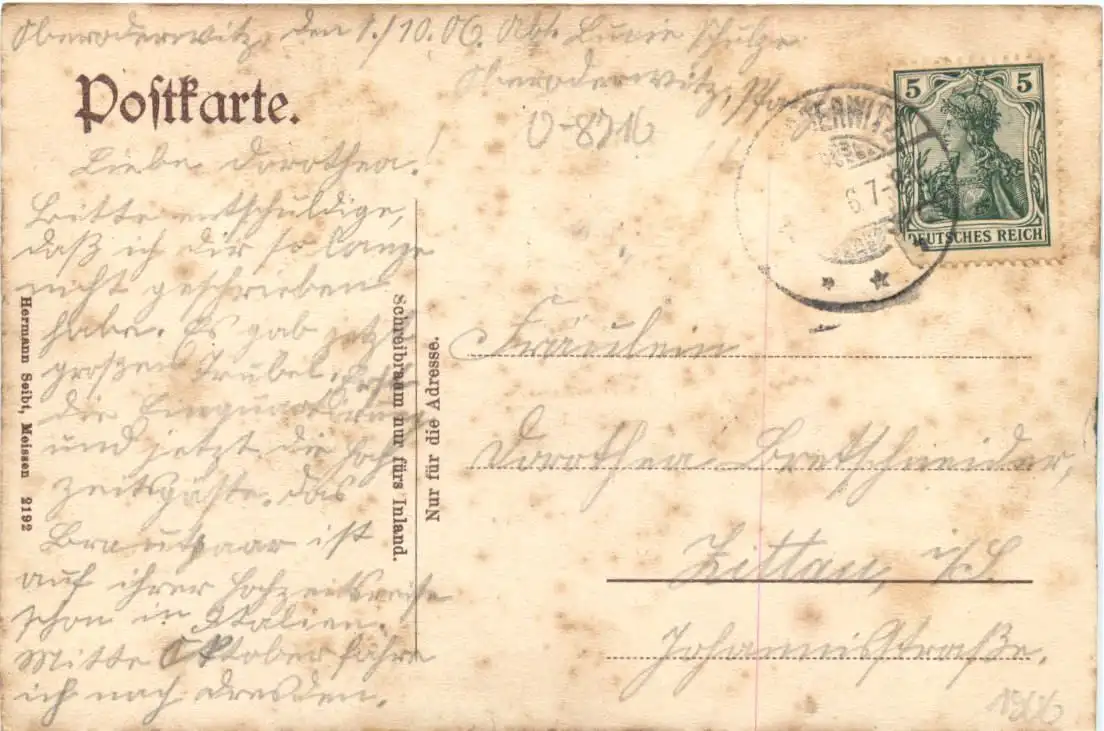 Oberoderwitz, den 1./10. 06. Abs. Lucie Schulze
Oberoderwitz, Pfa
Postkarte.
O-8716
Liebe Dorothea!
Bitte entschuldige,
daß ich dir so lange
nicht geschrieben
habe. Es gab jetzt
großen Trubel. Erst
die Einquartierung
und jetzt die Hoch
zeitsgäste. Das
Brautpaar ist
auf ihrer Hochzeitsreise
schon in Italien.
Mitte Oktober fahre
ich nach Dresden.
Hermann Seibt, Meissen 2192
Schreibraum nur fürs Inland.
Nur für die Adresse.
5 5
DEUTSCHES REICH
ERWITZ
6 7-8
Fräulein
Dorothea Bretschneider,
Zittau, i/S
Johannisstraße.
1906